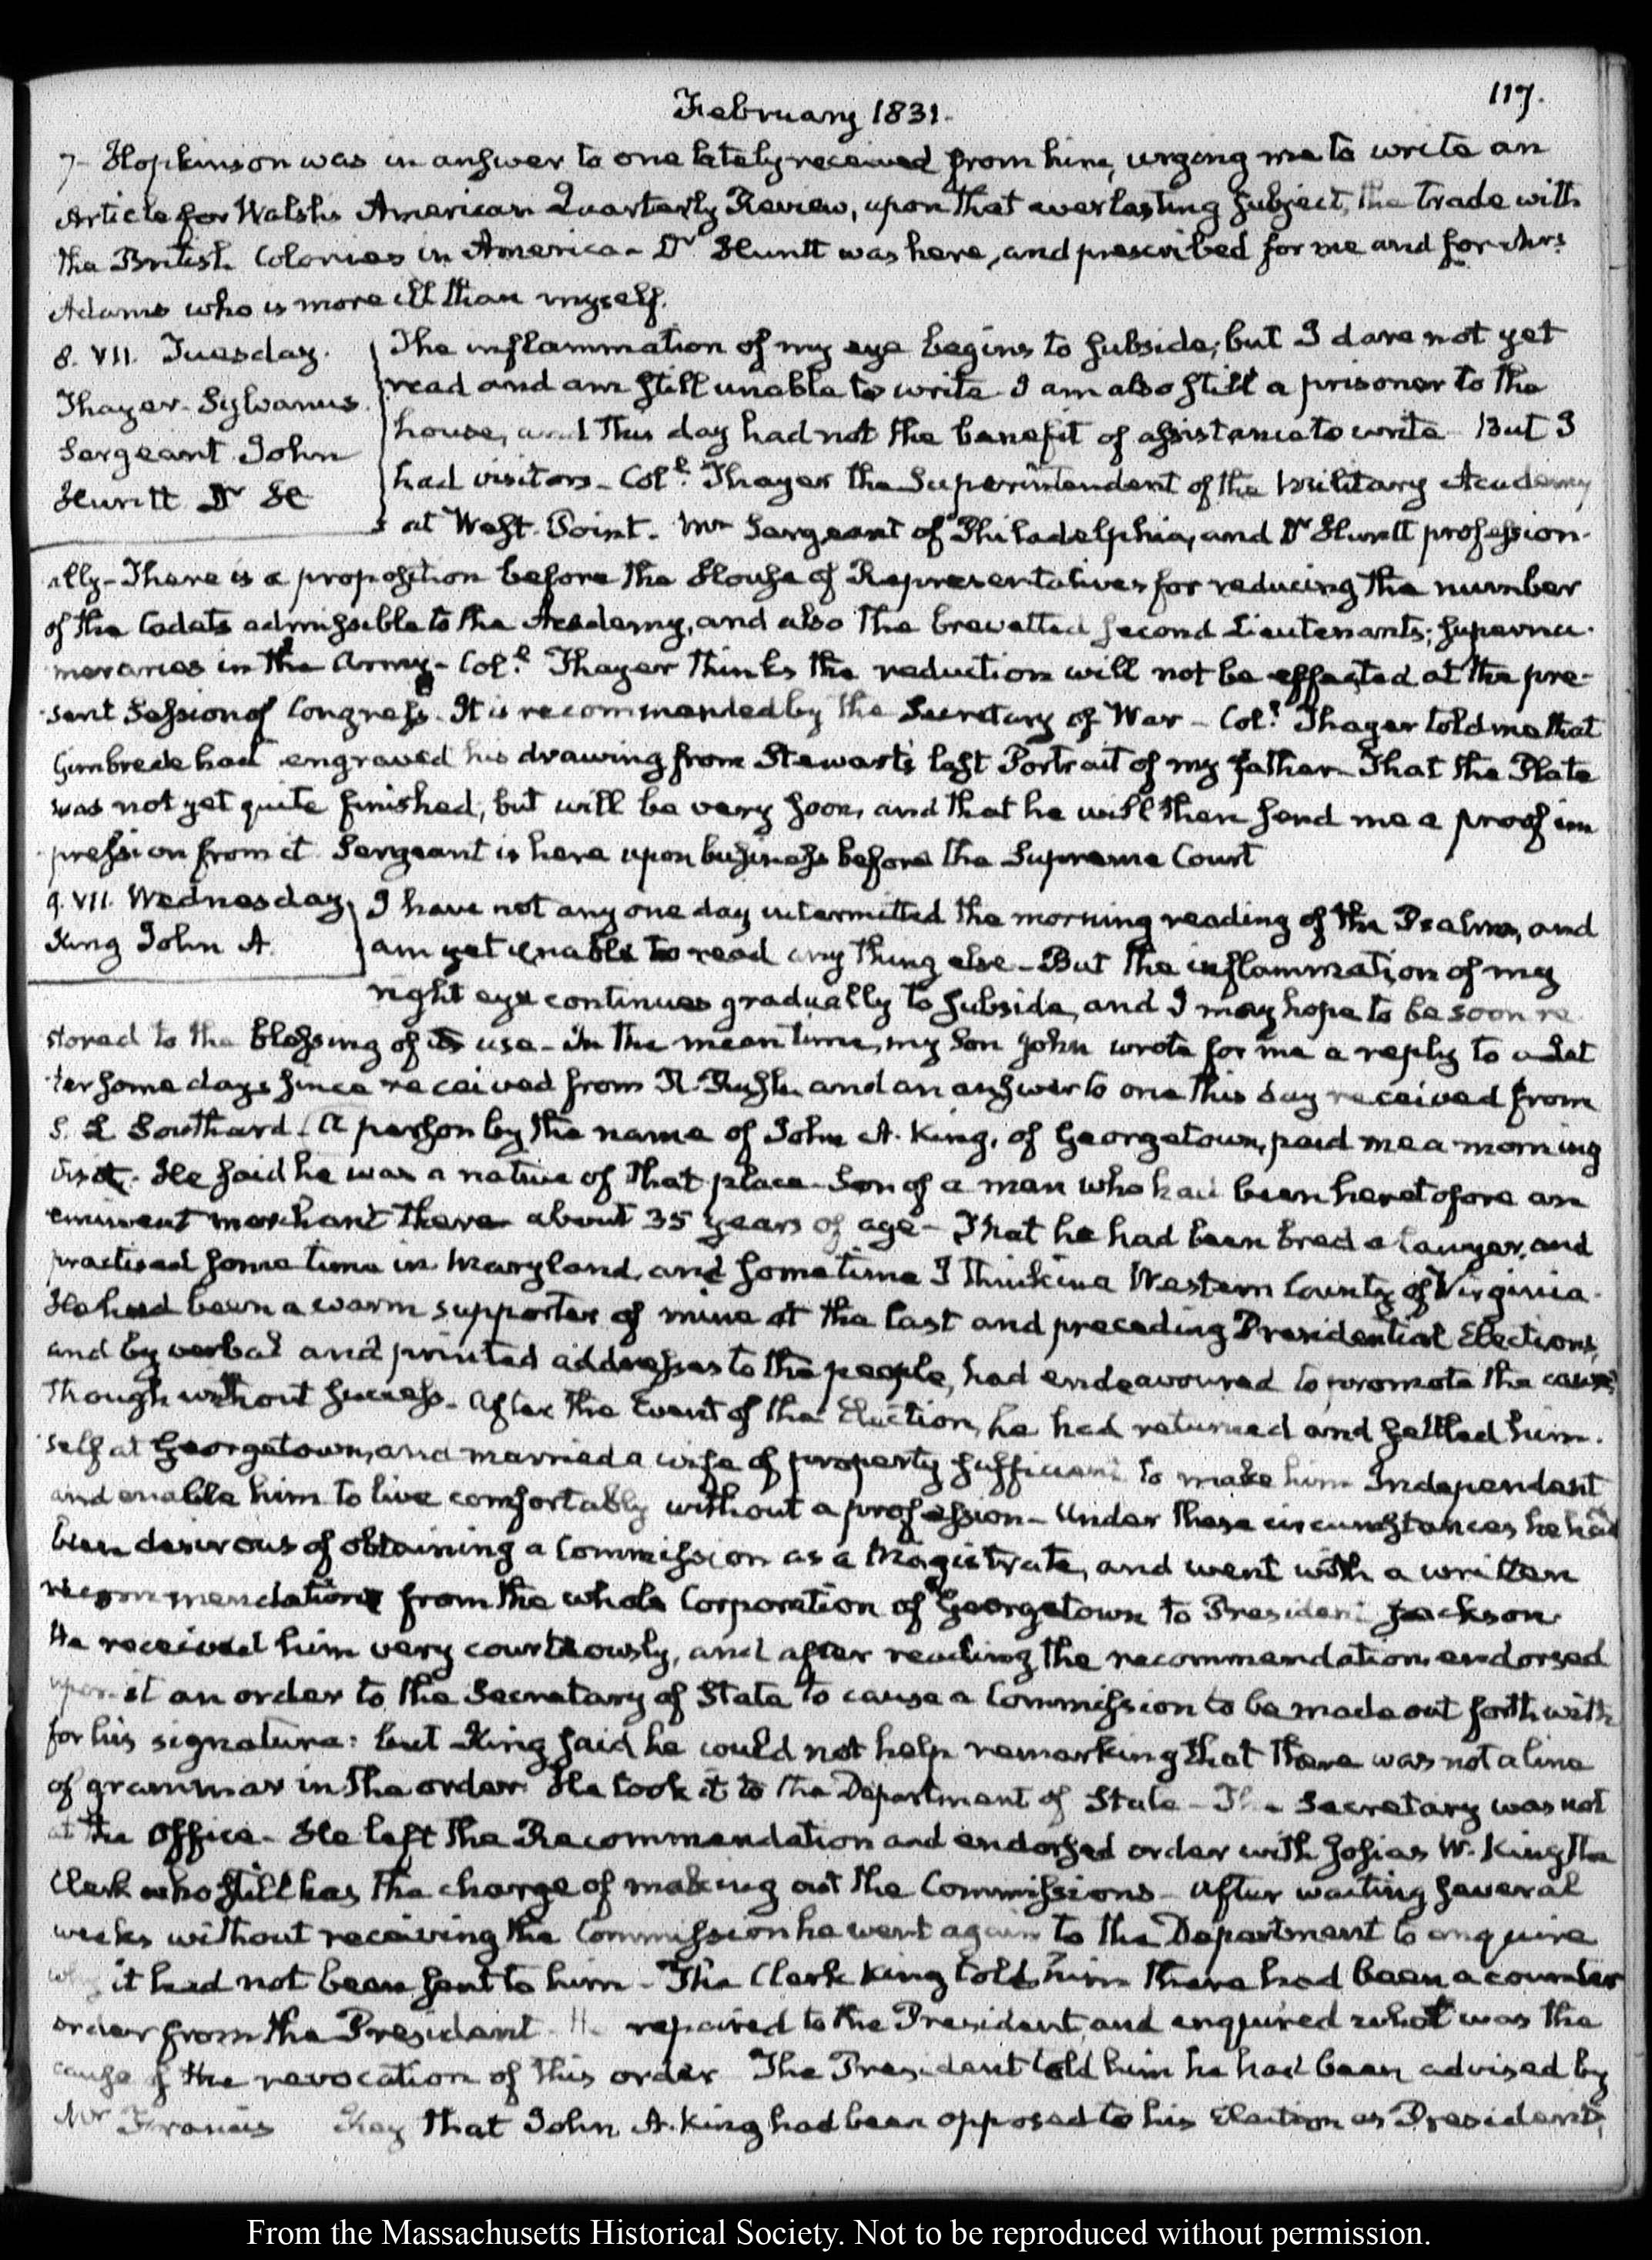 117.
February 1831.
7- Hopkinson was in answer to one lately received from him, urging me to write an
Article for Walsh's American Quarterly Review, upon that everlasting subject, the trade with
the British Colonies in America- Dr Huntt was here, and prescribed for me and for Mrs
Adams who is more ill than myself.
8. VII. Tuesday.
Thayer. Sylvanus
Sergeant John
Huntt Dr H
The inflammation of my eye begins to subside; but I dare not yet
read and am still unable to write. I am also still a prisoner to the
house, and this day had not the benefit of assistance to write But I
had visitors- Coll. Thayer the Superintendent of the Military Academy
at West-Point. Mr Sergeant of Philadelphia, and Dr Huntt profession-
ally- There is a proposition before the House of Representatives for reducing the number
of the Cadets admissible to the Academy, and also the brevetted second Lieutenants; supernu-
meraries in the Army- Coll. Thayer thinks the reduction will not be effected at the pre-
sent Session of Congress. It is recommended by the Secretary of War- Coll. Thayer told me that
Gimbrede had engraved his drawing from Stewart's last Portrait of my father That the Plate
was not yet quite finished, but will be very soon, and that he will then send me a proof im
pression from it Sergeant is here upon business before the Supreme Court
9. VII. Wednesday.
King John A.
I have not any one day intermitted the morning reading of the Psalms, and
am yet unable to read any thing else- But the inflammation of my
right eye continues gradually to subside, and I may hope to be soon re
stored to the blessing of its use- In the mean time, my Son John wrote for me a reply to a Let
ter some days since received from R. Rush, and an answer to one this day received from
S. L Southard. A person by the name of John A. King, of Georgetown, paid me a morning
visit. He said he was a native of that place- Son of a man who had been heretofore an
eminent merchant there about 35 years of age- That he had been bred a lawyer, and
practised some time in Maryland, and sometime I think in a Western County of Virginia.
He had been a warm supporter of mine at the last and preceding Presidential Elections,
and by verbal and printed addresses to the people, had endeavoured to promote the cause
though without success- After the Event of the Election, he had returned and settled him-
self at Georgetown, and married a wife of property sufficient to make him Independent
and enable him to live comfortably without a profession- Under these circumstances he had
been desirous of obtaining a Commission as a Magistrate, and went with a written
recommendation from the whole Corporation of Georgetown to President Jackson.
He received him very courteously, and after reading the recommendation, endorsed
upon it an order to the Secretary of State to cause a Commission to be made out forthwith
for his signature: but King said he could not help remarking that there was not a line
of grammar in the order. He took it to the Department of State- The Secretary was not
at the Office- He left the Recommendation and endorsed order with Josias W. King the
Clerk who still has the charge of making out the Commissions- After waiting several
weeks without receiving the Commission he went again to the Department to enquire
why it had not been sent to him- The Clerk King told him there had been a counter
order from the President. He repaired to the President, and enquired what was the
cause of the revocation of this order The President told him he had been advised by
Mr Francis Key that John A. King had been opposed to his Election as President,
From the Massachusetts Historical Society. Not to be reproduced without permission.